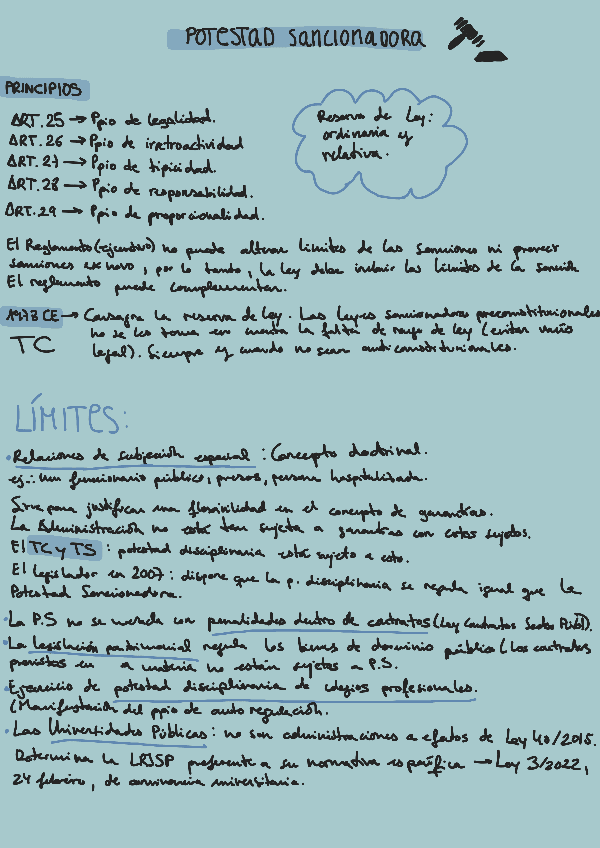 POTESTAD SANCIONADORA
PRINCIPIOS
ART. 25 → Ppio de legalidad.
ART. 26 → Ppio de irretroactividad
ART. 27 → Ppio de tipicidad.
ART. 28 → Ppio de responsabilidad.
ART. 29 → Ppio de proporcionalidad.
Reserva de Ley:
ordinaria y
relativa.
El Reglamento (-ejecutivo) no puede alterar límites de las sanciones ni proveer
sanciones ex novo, por lo tanto, la ley debe incluir los límites de la sanción
El reglamento puede complementar.
1978 CE → Consagra la reserva de ley. Las leyes sancionadoras preconstitucionales
TC no se les toma en cuenta la falta de rango de ley (evitar vacío
legal). Siempre y cuando no sean anticonstitucionales.
LÍMITES:
• Relaciones de subjección especial : Concepto doctrinal.
ej.: un funcionario público, presos, persona hospitalizada.
Sirve para justificar una flexibilidad en el concepto de garantías.
La Administración no está tan sujeta a garantías con estos sujetos.
El TC y TS : potestad disciplinaria está sujeto a esto.
El legislador en 2007 : dispone que la p. disciplinaria se regula igual que la
Potestad Sancionadora.
• La P.S no se mezcla con penalidades dentro de contratos (Ley Contratos Sector Públ).
• La legislación patrimonial regula los bienes de dominio público (los contratos
previstos en a materia no están sujetos a P.S.
• Ejercicio de potestad disciplinaria de colegios profesionales.
(Manifestación del ppio de auto regulación.
• Las Universidades Públicas : no son administraciones a efectos de Ley 40/2015.
Determina la LRJSP preferente a su normativa específica → Ley 3/2022,
24 febrero, de convivencia universitaria.